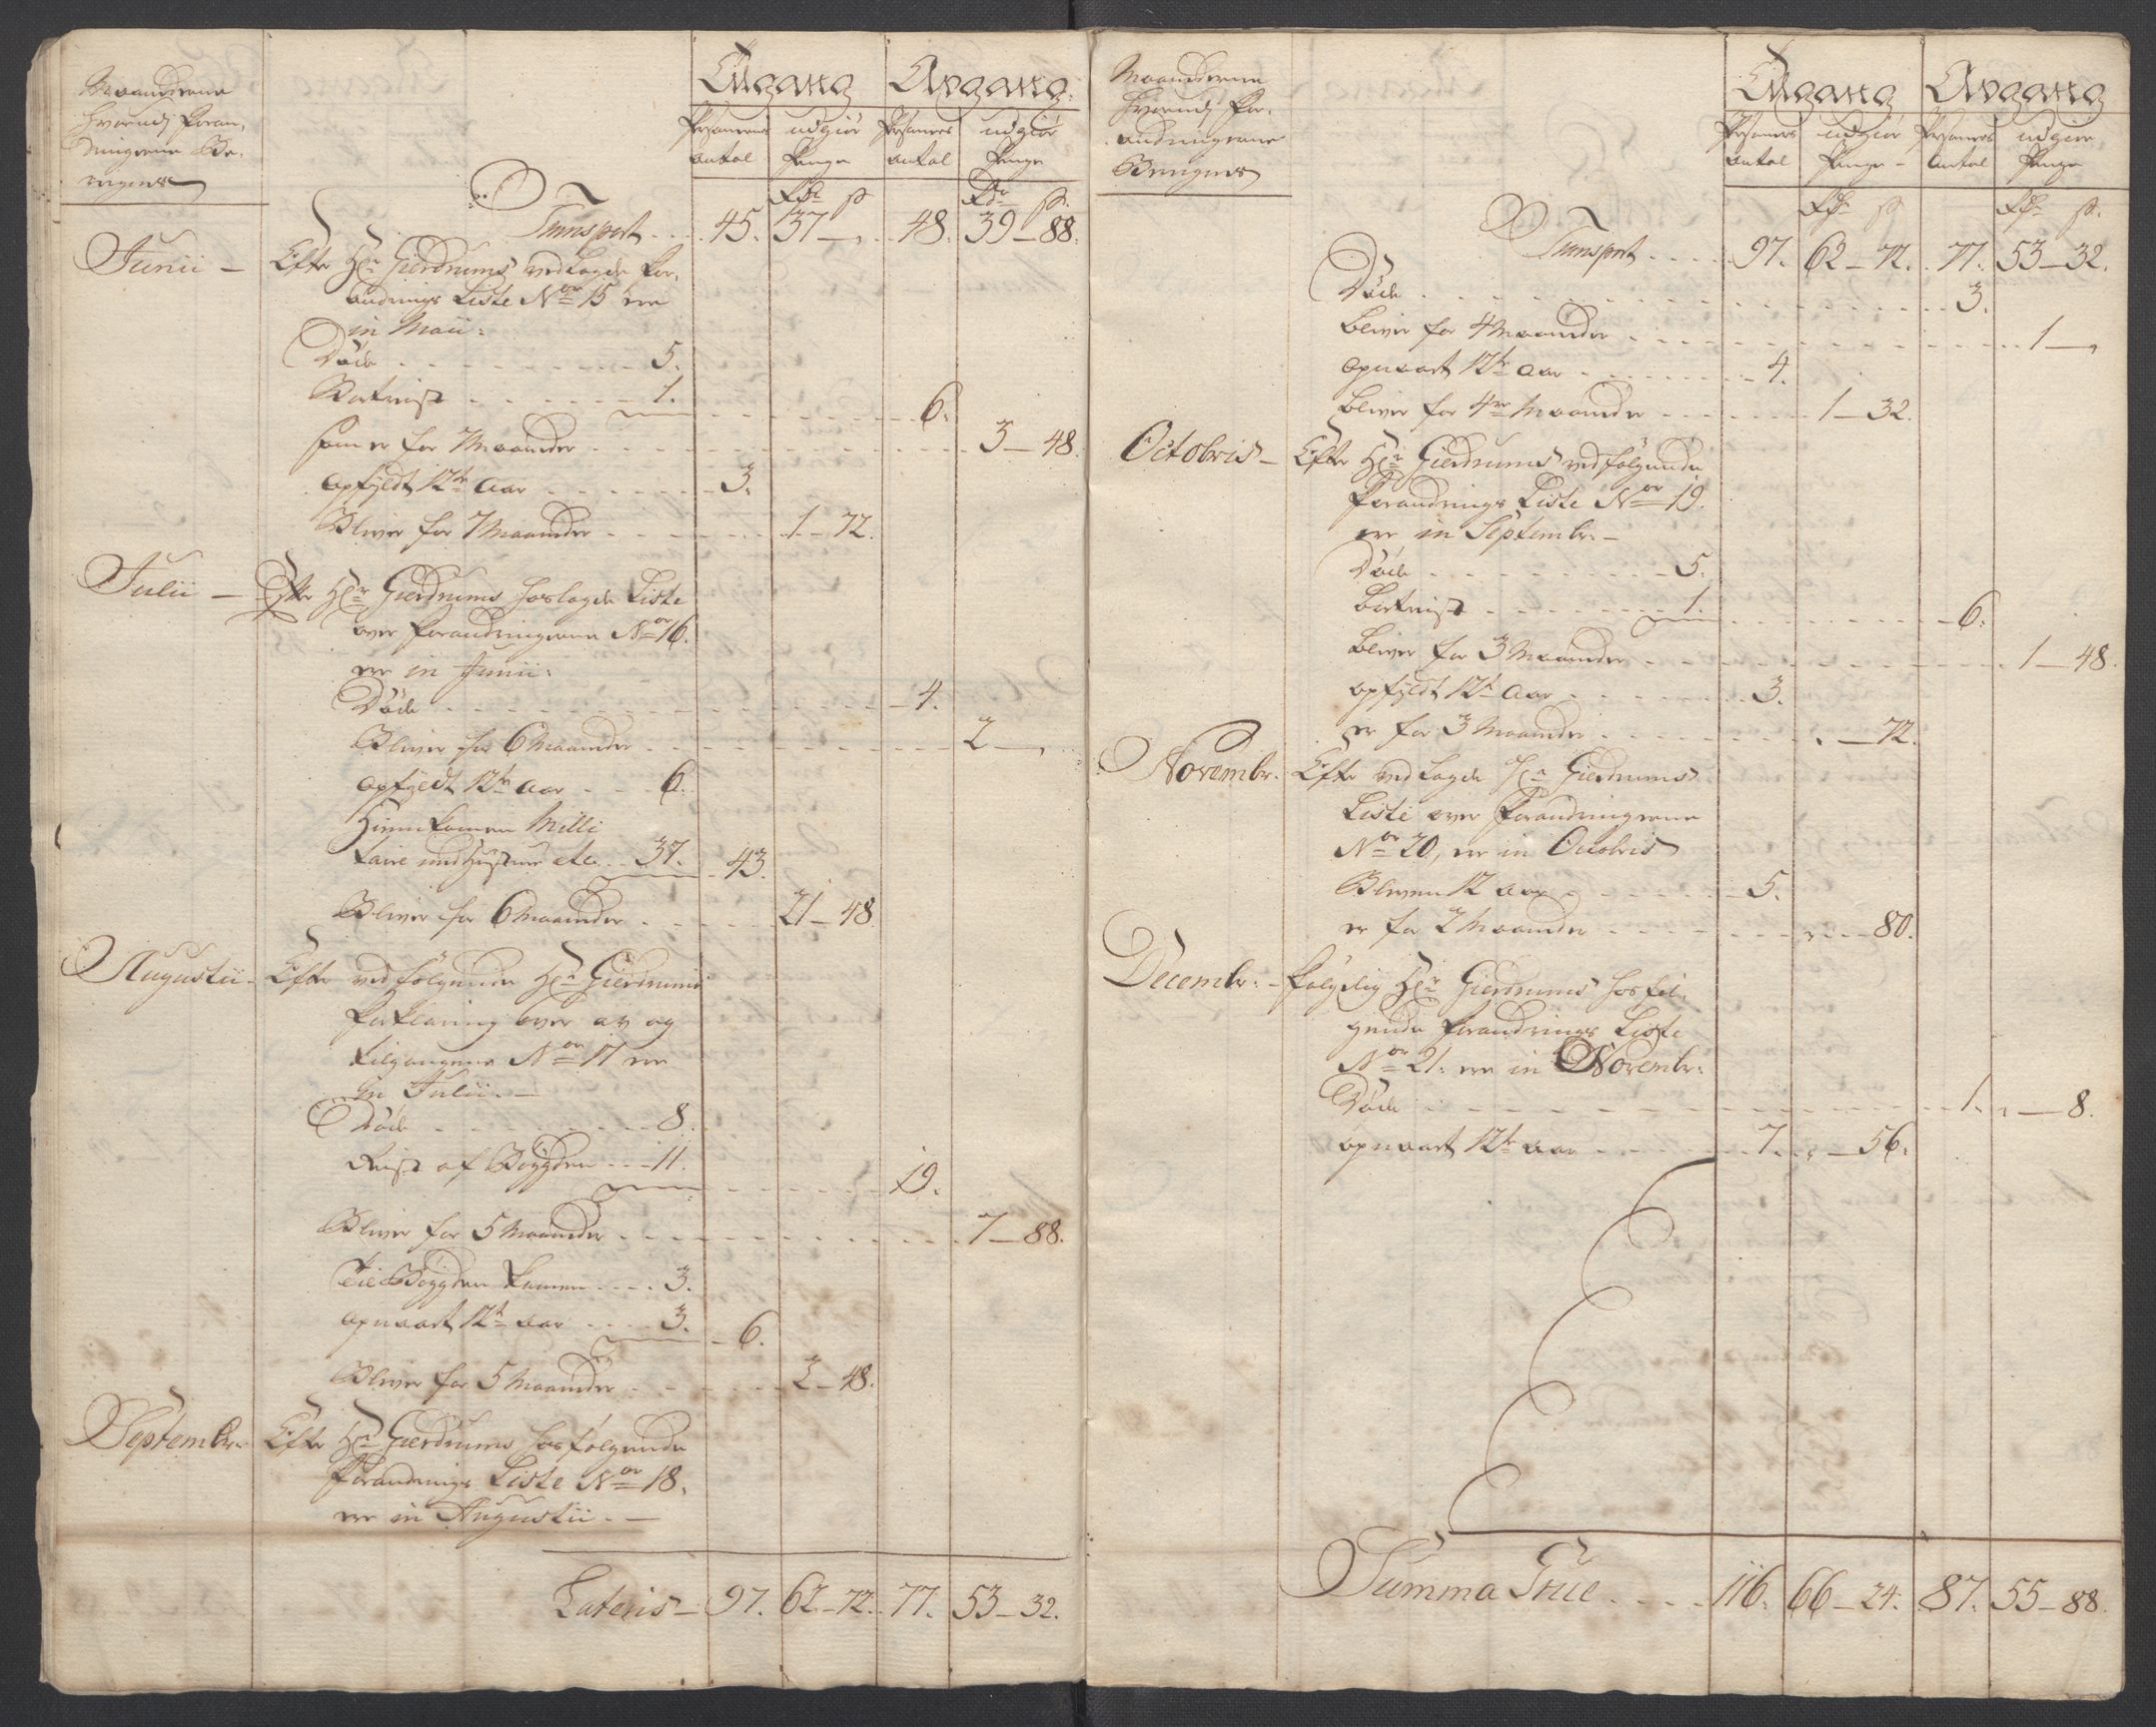 Maanederne
hvorudj Foran-
dringerne Be-
regnes
Tilgang Afgang
Persohners Antal udgiør Penge Persohners Antal udgiør Penge
Rdr ß Rdr ß
Transport 45. 37 — 48. 39 — 88.
Junii — Efter Hr Gierdrums vedlagde For-
andrings Liste Nor 15 ere
in Maii:
Døde 5.
Bortreist 1.
6.
som er for 7 Maaneder 3 — 48.
opfyldt 12te Aar 3.
Bliver for 7 Maaneder 1 — 72.
Julii — Efter Hr Gierdrums hoslagde Liste
over Forandringerne Nor 16.
ere in Junii:
Døde 4.
Bliver for 6 Maaneder 2 —
opfyldt 12te Aar 6.
Hiemkomne Milli
taire med Hustruer etc. 37. 43.
Bliver for 6 Maaneder 21 — 48.
Augustii — Efter vedfølgende Hr Gierdrums
Forklaring over av og
tilgangene Nor 17 ere
in Julii. —
Døde 8.
Reist af Bøygden 11.
19.
Bliver for 5 Maaneder 7 — 88.
Til Bøygden kommen 3.
opnaaet 12te aar 3. 6.
Bliver for 5 Maaneder 2 — 48.
Septembr. Efter Hr Gierdrums hosfølgende
Forandrings Liste Nor 18.
ere in Augustii. —
Lateris — 97. 62 — 72. 77. 53 — 32.
Maanederne
hvorudj For-
andringerne
Beregnes
Tilgang Afgang
Persohners Antal udgiør Penge Persohners Antal udgiør Penge
Rdr ß Rdr ß
Transport 97. 62 — 72. 77. 53 — 32.
Døde 3.
bliver for 4 Maaneder 1 —
opnaaet 12te Aar 4.
bliver for 4re Maaneder 1 — 32.
Octobris — Efter Hr Gierdrums vedfølgende
Forandrings Liste Nor 19.
ere in Septembr. —
Døde 5.
bortreist 1. 6.
bliver for 3 Maaneder 1 — 48.
opfyldt 12te Aar 3.
er for 3 Maaneder — 72.
Novembr. Efter vedlagde Hr Gierdrums
Liste over Forandringerne
Nor 20, ere in Octobris
Bleven 12 aar 5.
er for 2 Maaneder 80.
Decembr. — Følgelig Hr Gierdrums hosføl-
gende Forandrings Liste
Nor 21. ere in Novembr:
Døde 1. — 8.
opnaaet 12te aar 7. — 56.
Summa True 116. 66 — 24. 87. 55 — 88.